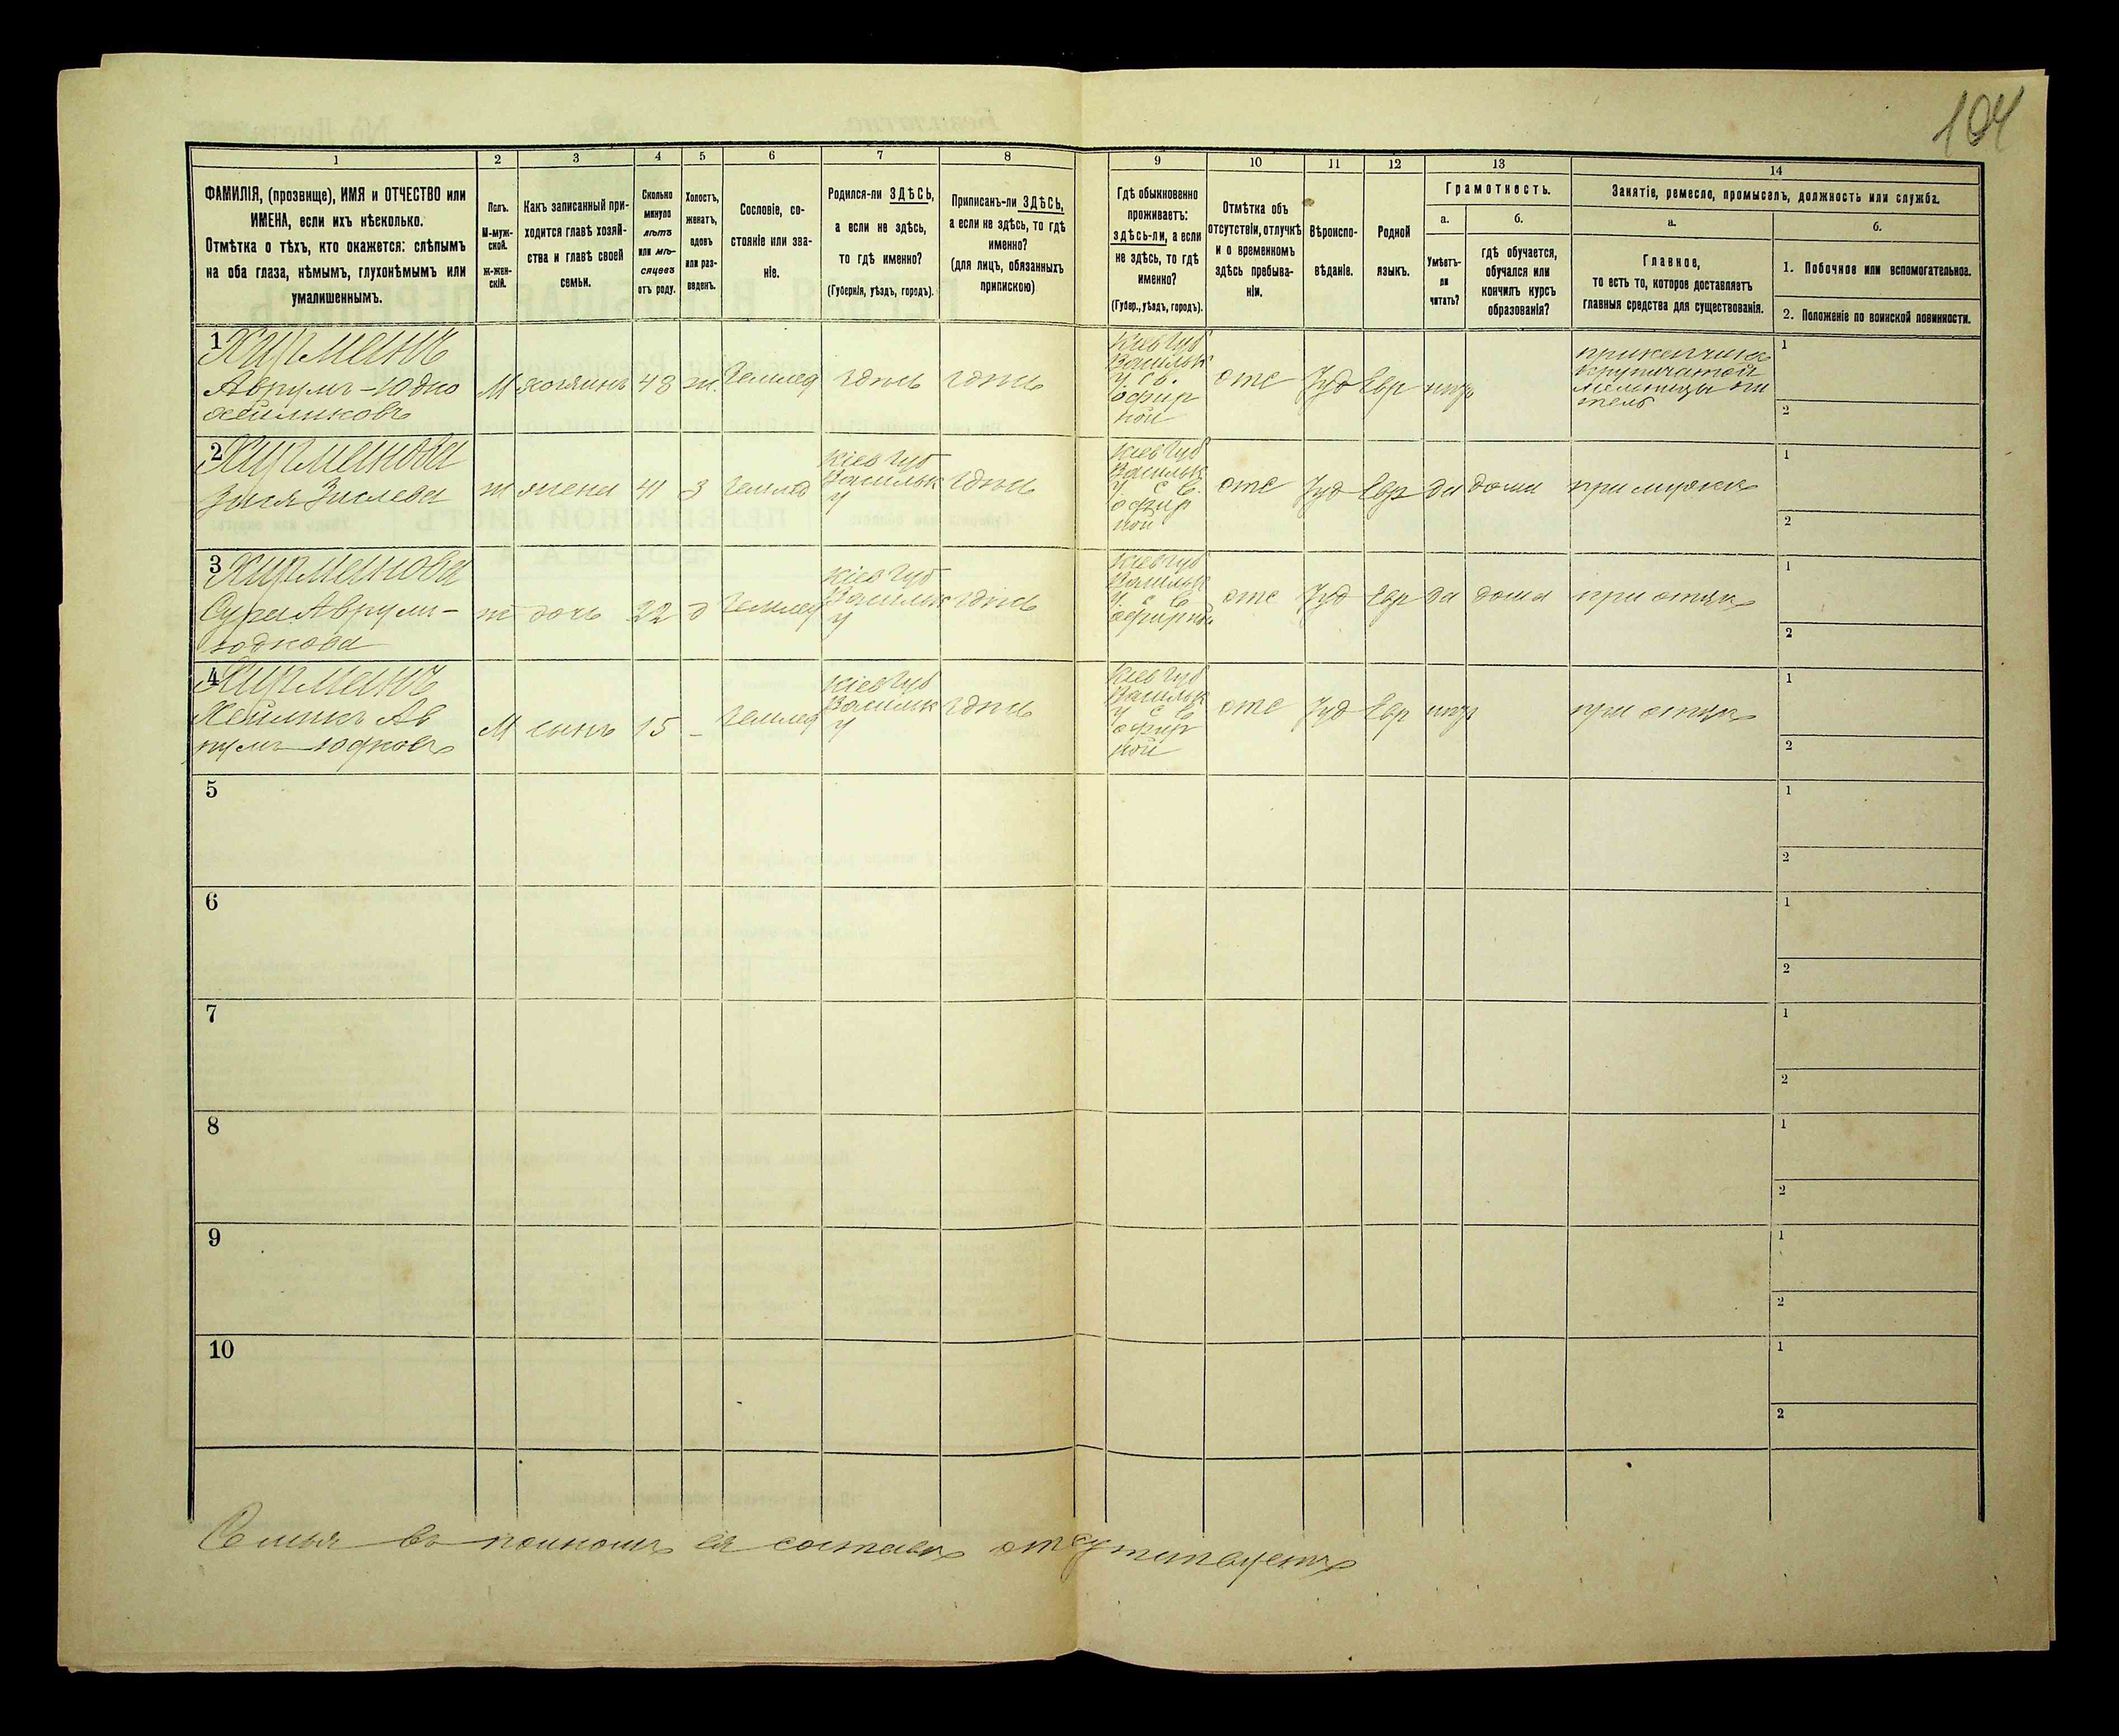 104
1
2
3
4
5
6
7
8
9
10
11
12
13
14
ФАМИЛІЯ, (прозвище), ИМЯ и ОТЧЕСТВО или
ИМЕНА, если ихъ нѣсколько.
Отмѣтка о тѣхъ, кто окажется: слѣпымъ
на оба глаза, нѣмымъ, глухонѣмымъ или
умалишеннымъ.
Полъ.
М-муж-
ской.
Ж-жен-
скій.
Какъ записанный при-
ходится главѣ хозяй-
ства и главѣ своей
семьи.
Сколько
минуло
лѣтъ
или мѣ-
сяцевъ
отъ роду.
Холостъ,
женатъ,
вдовъ
или раз-
веденъ.
Сословіе, со-
стояніе или зва-
ніе.
Родился-ли ЗДѢСЬ,
а если не здѣсь,
то гдѣ именно?
(Губернія, уѣздъ, городъ).
Приписанъ-ли ЗДѢСЬ,
а если не здѣсь, то гдѣ
именно?
(для лицъ, обязанныхъ
припискою)
Гдѣ обыкновенно
проживаетъ:
здѣсь-ли, а если
не здѣсь, то гдѣ
именно?
(Губер., уѣздъ, городъ).
Отмѣтка объ
отсутствіи, отлучкѣ
и о временномъ
здѣсь пребыва-
ніи.
Вѣроиспо-
вѣданіе.
Родной
языкъ.
Грамотность.
а.
б.
Умѣетъ-
ли
читать?
гдѣ обучается,
обучался или
кончилъ курсъ
образованія?
Занятіе, ремесло, промыселъ, должность или служба.
а.
б.
Главное,
то есть то, которое доставляетъ
главныя средства для существованія.
1. Побочное или вспомогательное.
2. Положеніе по воинской повинности.
1
Аврумъ-Юдко
М
хозяинъ
48
ж.
Землед
здѣсь
здѣсь
Кіев Губ
Васильк
у. с.
отс
Іуд
Евр
нѣтъ
1
2
2
ж
жена
41
з
Землед
Кіев Губ
Васильк
у
здѣсь
Кіев Губ
Васильк
отс
Іуд
Евр
да
дома
при мужѣ
1
2
3
Сура Аврумъ-
Юдкова
ж
дочь
22
д
Землед
Кіев Губ
Васильк
у
здѣсь
Кіев Губ
Васильк
отс
Іуд
Евр
да
дома
при отцѣ
1
2
4
Хейликъ Ав
румъ-Юдковъ
М
сынъ
15
-
Землед
Кіев Губ
Васильк
у
здѣсь
Кіев Губ
Васильк
отс
Іуд
Евр
нѣтъ
при отцѣ
1
2
5
1
2
6
1
2
7
1
2
8
1
2
9
1
2
10
1
2
Семья въ полномъ ея составѣ отсутствуетъ